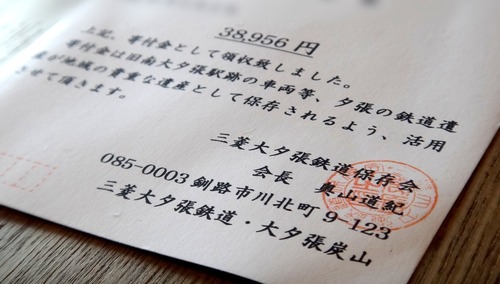 38,956 円
上記、寄付金として領収致しました。
寄付金は旧南大夕張駅跡の車両等、夕張の鉄道遺
産が地域の貴重な遺産として保存されるよう、活用
させて頂きます。
三菱大夕張鉄道保存会
会長 奥山道紀
085-0003 釧路市川北町 9-123
三菱大夕張鉄道・大夕張炭山